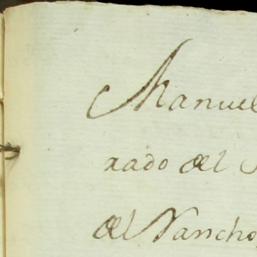 Manuel
rado del
del Rancho